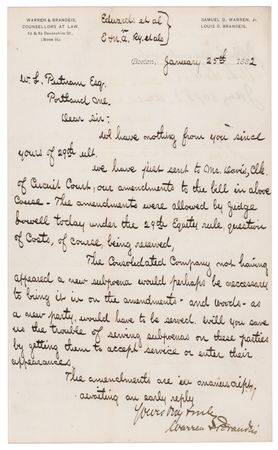 WARREN & BRANDEIS,
COUNSELLORS AT LAW,
60 & 62 Devonshire St.,
Edwards et al
E & N.A. Ry. et als
SAMUEL D. WARREN, Jr.
LOUIS D. BRANDEIS.
Boston, January 25th 1882
W. L. Putnam Esq.
Portland Me.
Dear Sir:
We have nothing from you since
yours of 29th ult.
We have just sent to Mr. Davis, Clk.
of Circuit Court, our amendments to the bill in above
cause - The amendments were allowed by Judge
Lowell today under the 29th Equity rule, question
of Costs, of course, being reserved,
The Consolidated Company not having
appeared a new subpoena would perhaps be necessary
to bring it in on the amendments - and - as
a new party, would have to be served. Will you save
us the trouble of serving subpoenas on these parties
by getting them to accept service or enter their
appearances
The amendments are in manuscript,
awaiting an early reply
Yours Very truly
Warren & Brandeis